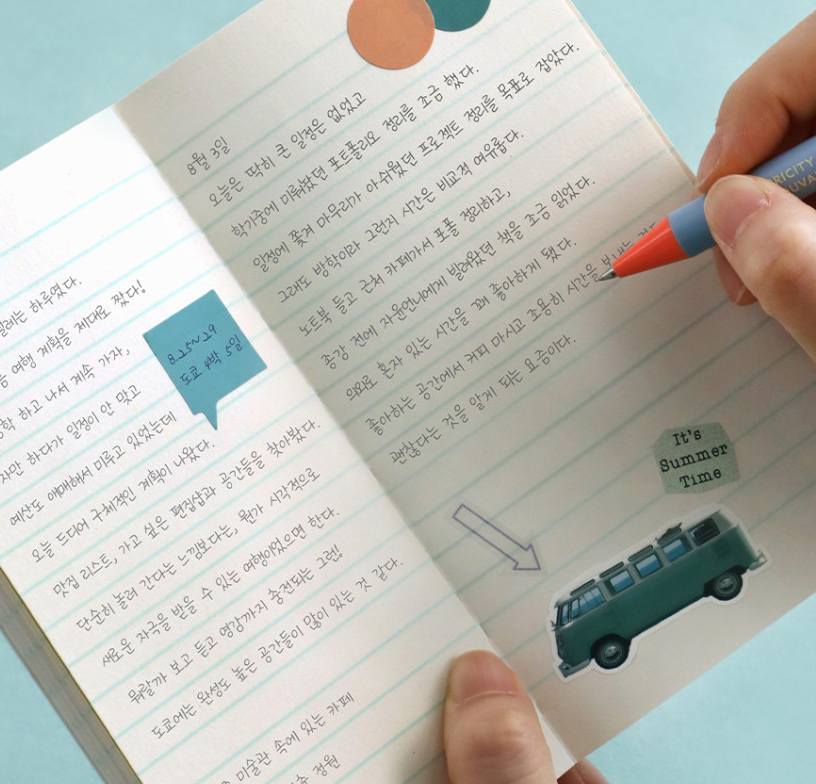 설레는 하루였다.
여행 계획을 제대로 짰다!
하고 나서 계속 가자,
하다가 일정이 안 맞고
예산도 애매해서 미루고 있었는데
오늘 드디어 구체적인 계획이 나왔다.
맛집 리스트, 가고 싶은 편집샵과 공간들을 찾아봤다.
단순히 놀러 간다는 느낌보다는, 뭔가 시각적으로
새로운 자극을 받을 수 있는 여행이었으면 한다.
뭐랄까 보고 듣고 영감까지 충전되는 그런!
도쿄에는 완성도 높은 공간들이 많이 있는 것 같다.
미술관 속에 있는 카페
정원
8.25~29
도쿄 4박 5일
8월 3일
오늘은 딱히 큰 일정은 없었고
학기중에 미뤄놨던 포트폴리오 정리를 조금 했다.
일정에 쫓겨 마무리가 아쉬웠던 프로젝트 정리를 목표로 잡았다.
그래도 방학이라 그런지 시간은 비교적 여유롭다.
노트북 들고 근처 카페가서 포폴 정리하고,
종강 전에 자윤언니에게 빌려왔던 책을 조금 읽었다.
의외로 혼자 있는 시간을 꽤 좋아하게 됐다.
좋아하는 공간에서 커피 마시고 조용히 시간을 보내는
괜찮다는 것을 알게 되는 요즘이다.
It's
Summer
Time